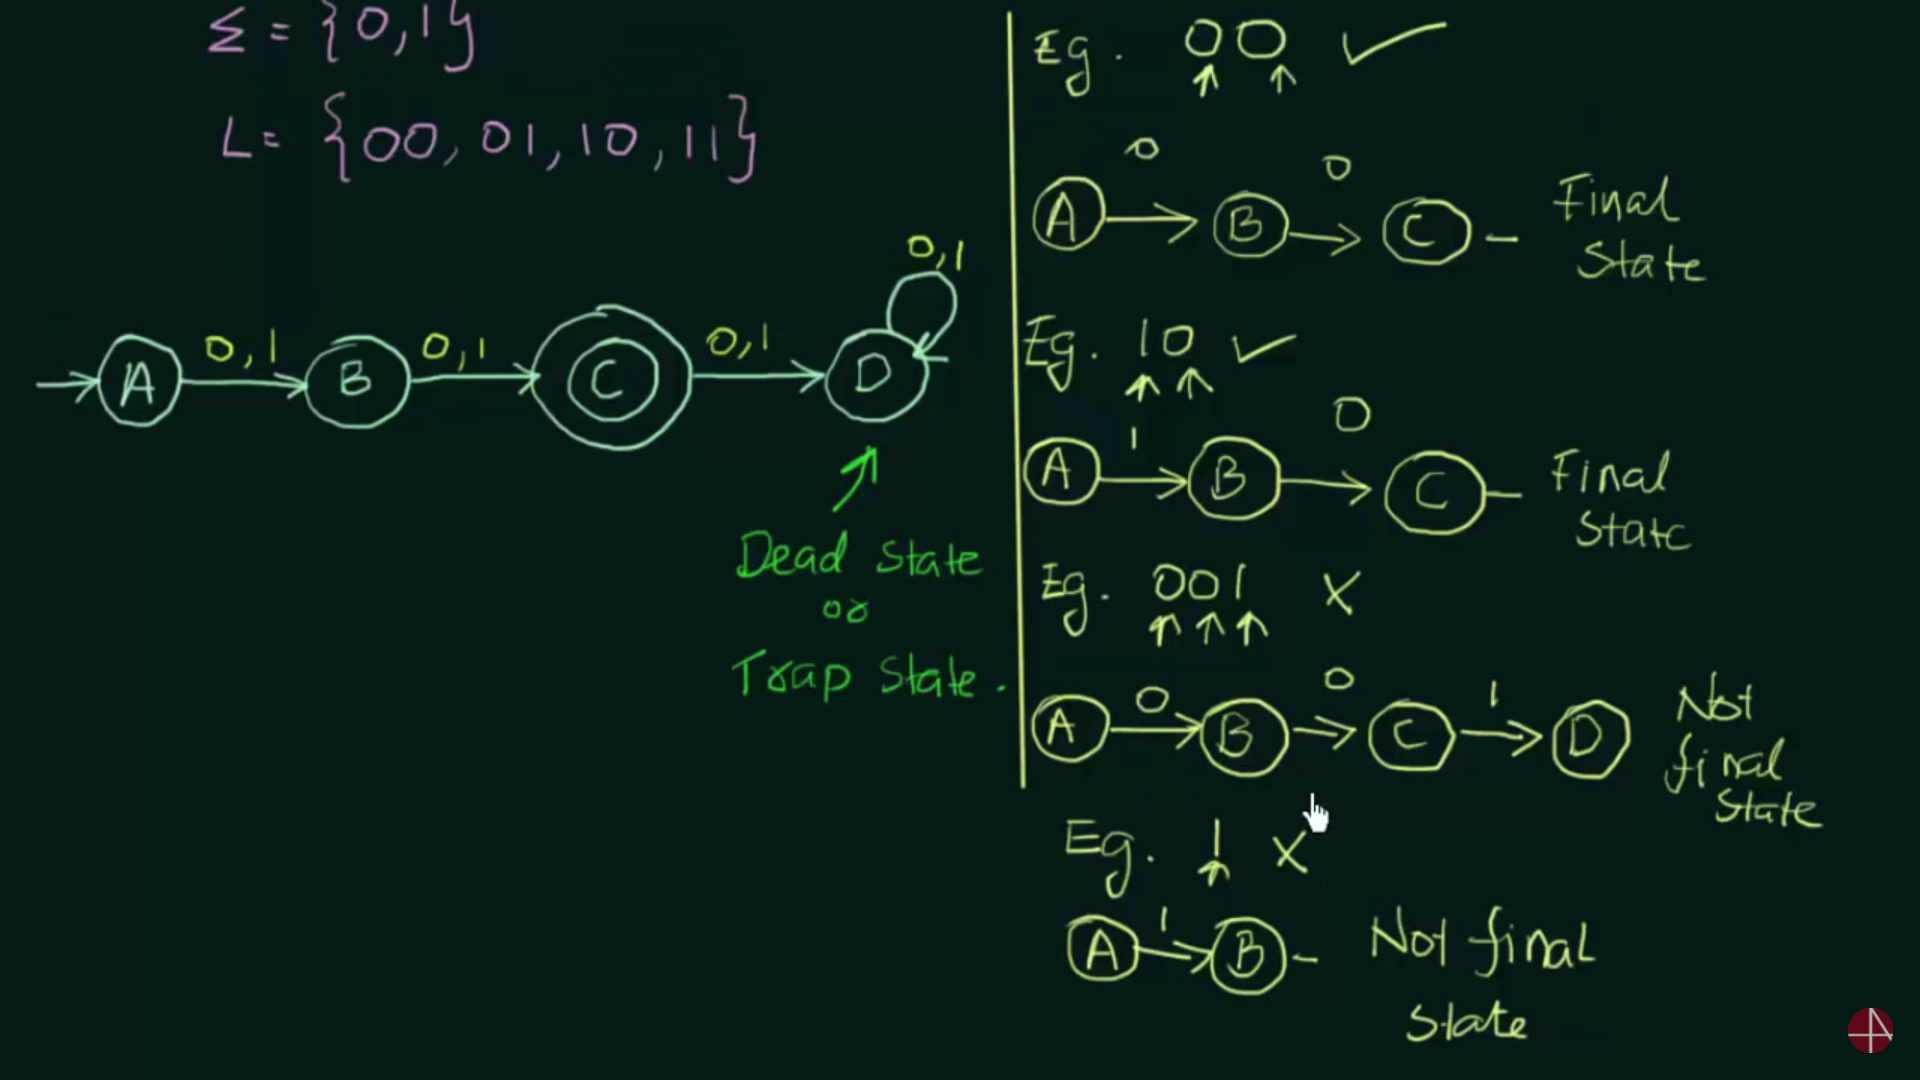 Σ = {0,1}
L = {00, 01, 10, 11}
0,1
0,1 0,1 0,1
A B C D
Dead State
or
Trap State.
Eg. 00 ✓
0 0
A B C – Final
State
Eg. 10 ✓
1 0
A B C – Final
State
Eg. 001 X
0 0 1
A B C D Not
final
State
Eg. 1 X
1
A B – Not final
State